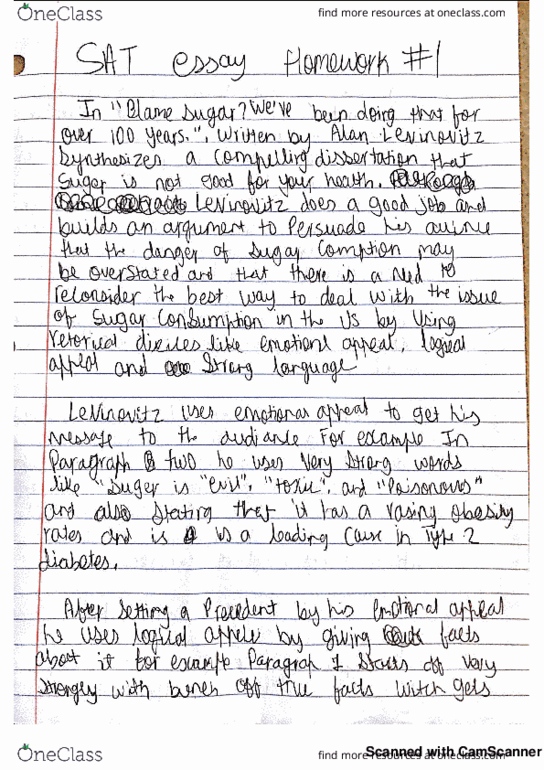 OneClass
find more resources at oneclass.com
SAT essay Homework #1
In "Blame Sugar? We've been doing that for
over 100 years.", written by Alan Levinovitz
Synthesizes a compelling dissertation that
Suger is not good for your health.
Levinovitz does a good job and
builds an argument to Persuade his
that the danger of Sugar Comption may
be overstated and that there is a need to
reconsider the best way to deal with the issue
of Sugar Consumption in the US by Using
retorical like emotional appeal, logical
appeal and Strong language
Levinovitz uses emotional appeal to get his
message to the audiance For example In
Paragraph two he uses Very Strong words
like "Suger is "evil", "toxic", and "Poisonous"
and also Stating that it has a rasing obesity
rates and is is a leading Cause in Type 2
diabetes.
After Setting a Precedent by his emotional appeal
he uses logical by giving facts
about it for example Paragraph 1 Starts off very
Strongly with bunch off true facts witch gets
OneClass
find more resources at oneclass.com
Scanned with CamScanner